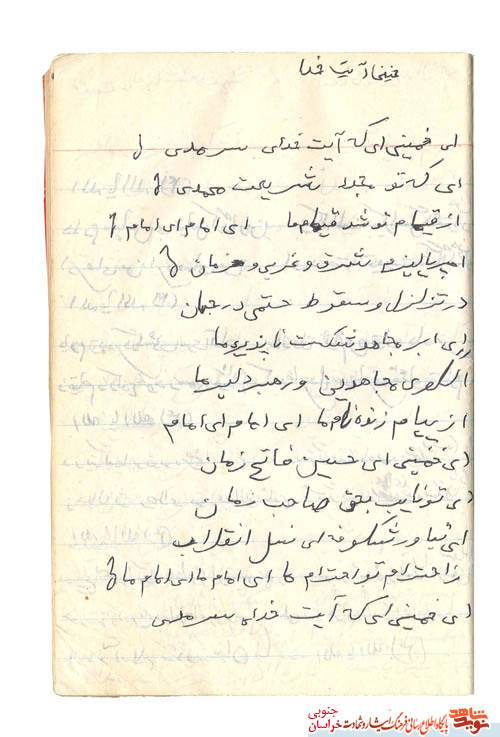 خمینی آیت خدا
ای خمینی ای که آیت خدای سرمدی
ای که تو مجدد شریعت محمدی
از قیام تو شد قیام ما ای امام ای امام
امپریالیزم شرق و غربی و
در تزلزل و سقوط حتمی در جهان
ای ابر مجاهد شکست ناپذیر ما
الگوی مجاهدین و رهبر دلیر ما
از پیام زنده نام ما ای امام ای امام
ای خمینی ای حسین فاتح زمان
ای تو نایب بحق صاحب زمان
ای شکوفه ای نسل انقلاب
ز احترام تو احترام ما ای امام ما ای امام ما
ای خمینی ای که آیت خدای سرمدی
نوید شاهد
پایگاه اطلاع رسانی فرهنگ ایثار و شهادت
خراسان جنوبی